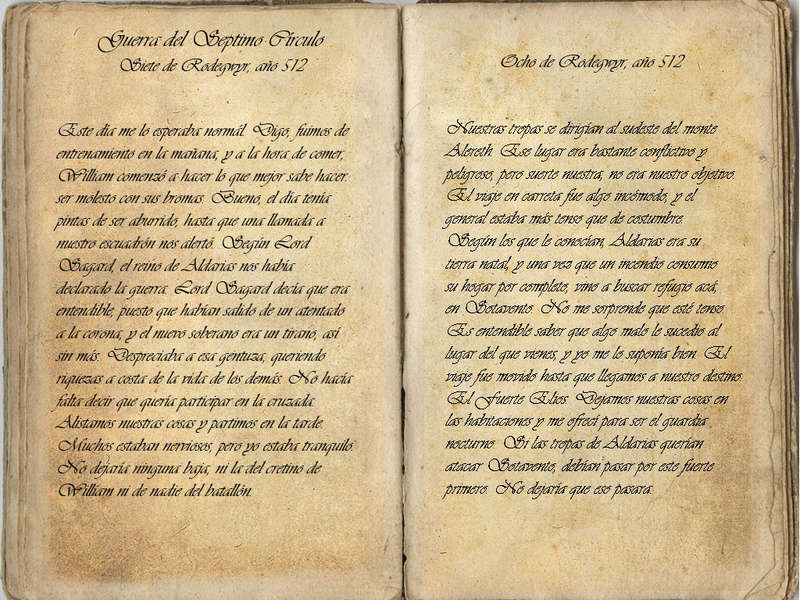 Guerra del Septimo Circulo
Siete de Rodegwyr, año 512
Este día me lo esperaba normál. Digo, fuimos de
entrenamiento en la mañana, y a la hora de comer,
William comenzó a hacer lo que mejor sabe hacer:
ser molesto con sus bromas. Bueno, el día tenía
pintas de ser aburrido, hasta que una llamada a
nuestro escuadrón nos alertó. Según Lord
Sagard, el reino de Aldarias nos había
declarado la guerra. Lord Sagard decía que era
entendible, puesto que habían salido de un atentado
a la corona, y el nuevo soberano era un tirano, así
sin más. Despreciaba a esa gentuza, queriendo
riquezas a costa de la vida de los demás. No hacía
falta decir que quería participar en la cruzada.
Alistamos nuestras cosas y partimos en la tarde.
Muchos estaban nerviosos, pero yo estaba tranquilo.
No dejaría ninguna baja, ni la del cretino de
William ni de nadie del batallón.
Ocho de Rodegwyr, año 512
Nuestras tropas se dirigían al sudeste del monte
Alereth. Ese lugar era bastante conflictivo y
peligroso, pero suerte nuestra, no era nuestro objetivo.
El viaje en carreta fue algo incómodo, y el
general estaba más tenso que de costumbre.
Según los que le conocían, Aldarias era su
tierra natal, y una vez que un incendio consumio
su hogar por completo, vino a buscar refugio acá,
en Sotavento. No me sorprende que esté tenso.
Es entendible saber que algo malo le sucedio al
lugar del que vienes, y yo me lo suponía bien. El
viaje fue movido hasta que llegamos a nuestro destino.
El Fuerte Elios. Dejamos nuestras cosas en
las habitaciones y me ofrecí para ser el guardia
nocturno. Si las tropas de Aldarias querían
atacar Sotavento, debían pasar por este fuerte
primero. No dejaría que eso pasara.